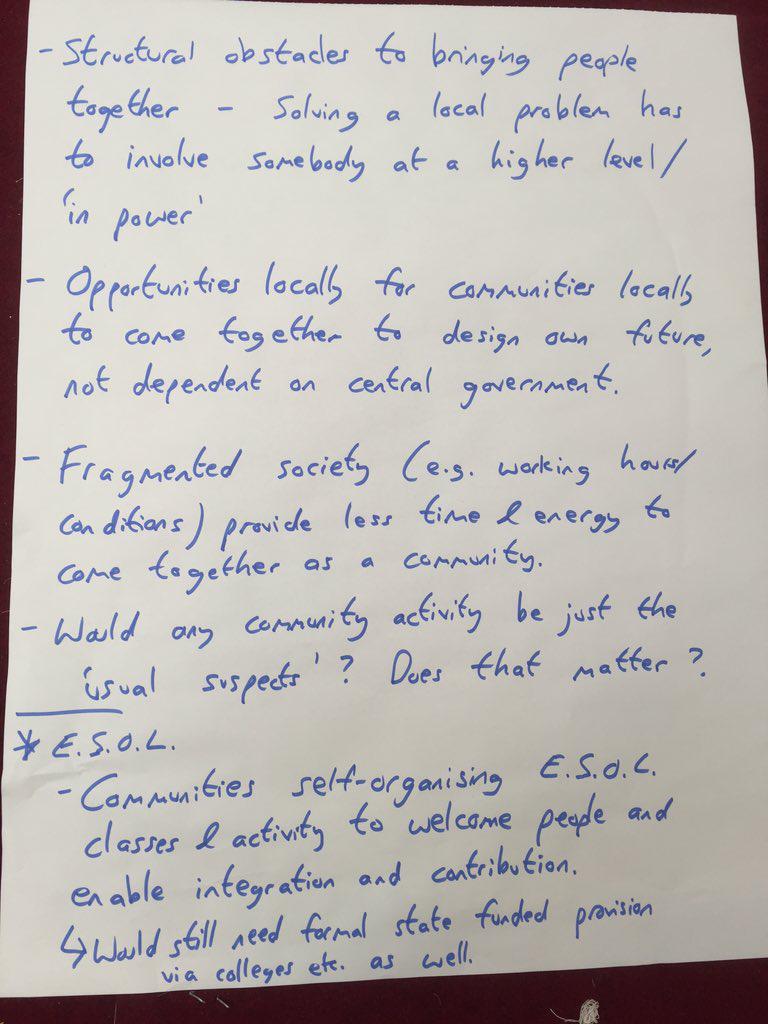 - Structural obstacles to bringing people
together - Solving a local problem has
to involve somebody at a higher level/
'in power'
- Opportunities locally for communities locally
to come together to design own future,
not dependent on central government.
- Fragmented society (e.g. working hours/
conditions) provide less time & energy to
come together as a community.
- Would any community activity be just the
'usual suspects'? Does that matter?
* E.S.O.L.
- Communities self-organising E.S.O.L.
classes & activity to welcome people and
enable integration and contribution.
↳ Would still need formal state funded provision
via colleges etc. as well.